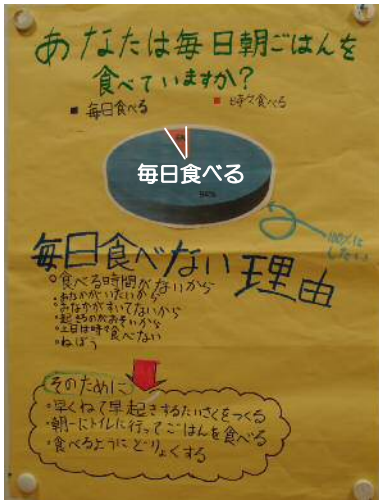 あなたは毎日朝ごはんを
食べていますか?
■ 毎日食べる ■ 時々食べる
6%
毎日食べる
94%
100%に
したい
毎日食べない理由
○食べる時間がないから
・おなかがいたいから
・おなかがすいてないから
・起きるのがおそいから
・土日は時々食べない
・ねぼう
そのために
・早くねて早起きするたいさくをつくる
・朝一にトイレに行ってごはんを食べる
・食べるようにどりょくする